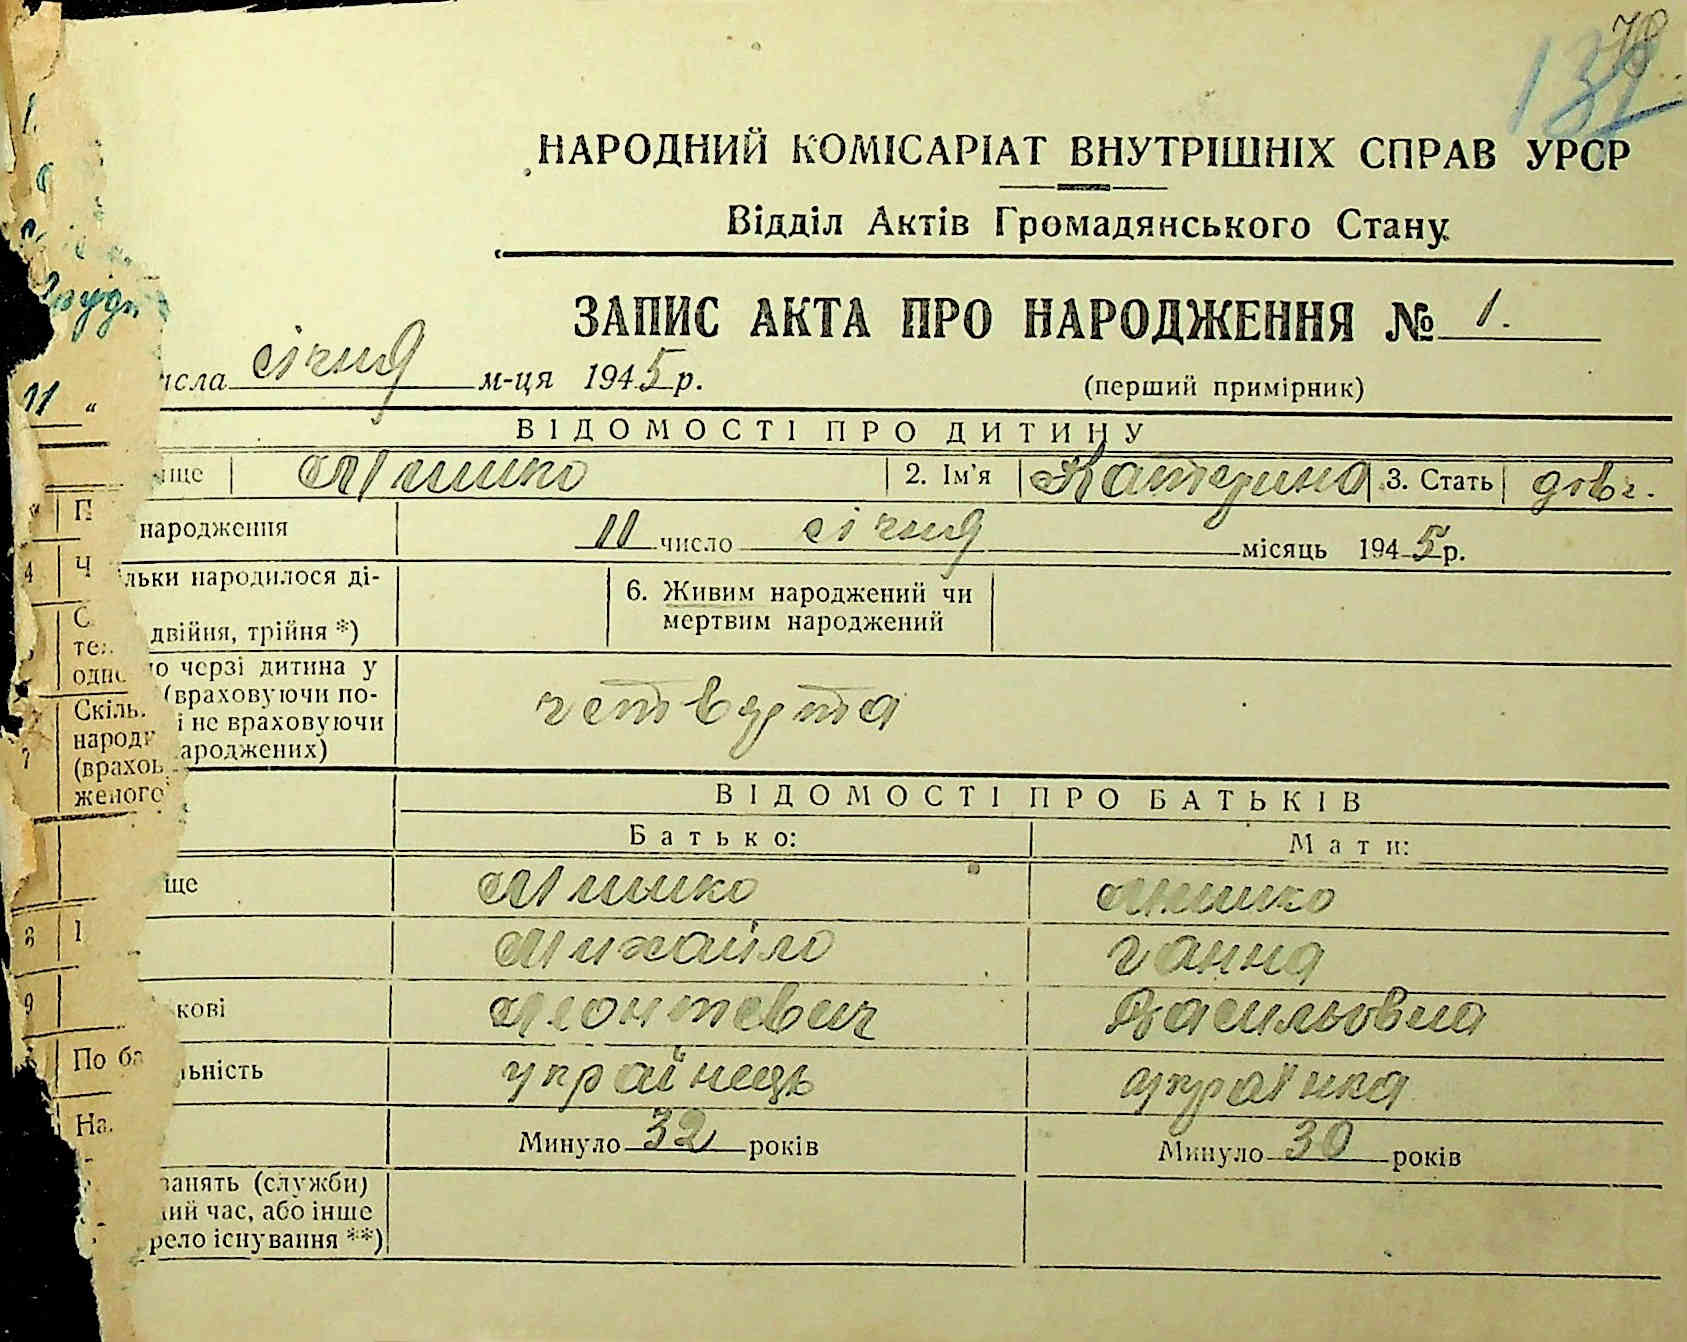 132 78
НАРОДНИЙ КОМІСАРІАТ ВНУТРІШНІХ СПРАВ УРСР
Відділ Актів Громадянського Стану
ЗАПИС АКТА ПРО НАРОДЖЕННЯ № 1.
исла січня м-ця 1945 р.
(перший примірник)
11 "
ВІДОМОСТІ ПРО ДИТИНУ
ище | Мишко | 2. Ім'я | Катерина | 3. Стать | дівч.
народження 11 число січня місяць 1945 р.
льки народилося ді-
двійня, трійня *)
6. Живим народжений чи
мертвим народжений
по черзі дитина у
(враховуючи по-
і не враховуючи
ароджених)
четверта
4 Ч
одно
Скіль
народ
7 (врахов
женого
ВІДОМОСТІ ПРО БАТЬКІВ
Батько: Мати:
ище Мишко Мишко
8 І Михайло Ганна
9 кові Леонтевич Васильовна
По ба
льність українець українка
На
Минуло 32 років Минуло 30 років
занять (служби)
ний час, або інше
рело існування **)